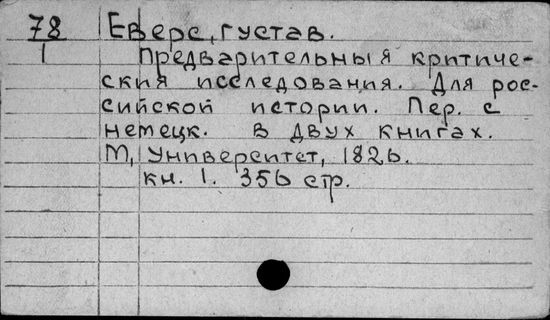 78 Еверс, Густав.
1 Предварительныя критиче-
ския исследования. Для рос-
сийской истории. Пер. с
немецк. в двух книгах.
М, Университет, 1826.
кн. 1. 356 стр.